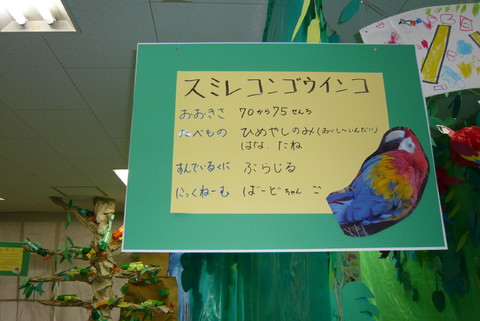 スミレコンゴウインコ
おおきさ 70から75せんち
たべもの ひめやしのみ(おいし〜いんだい!)
はな たね
すんでいるくに ぶらじる
にっくねーむ ばーどちゃん